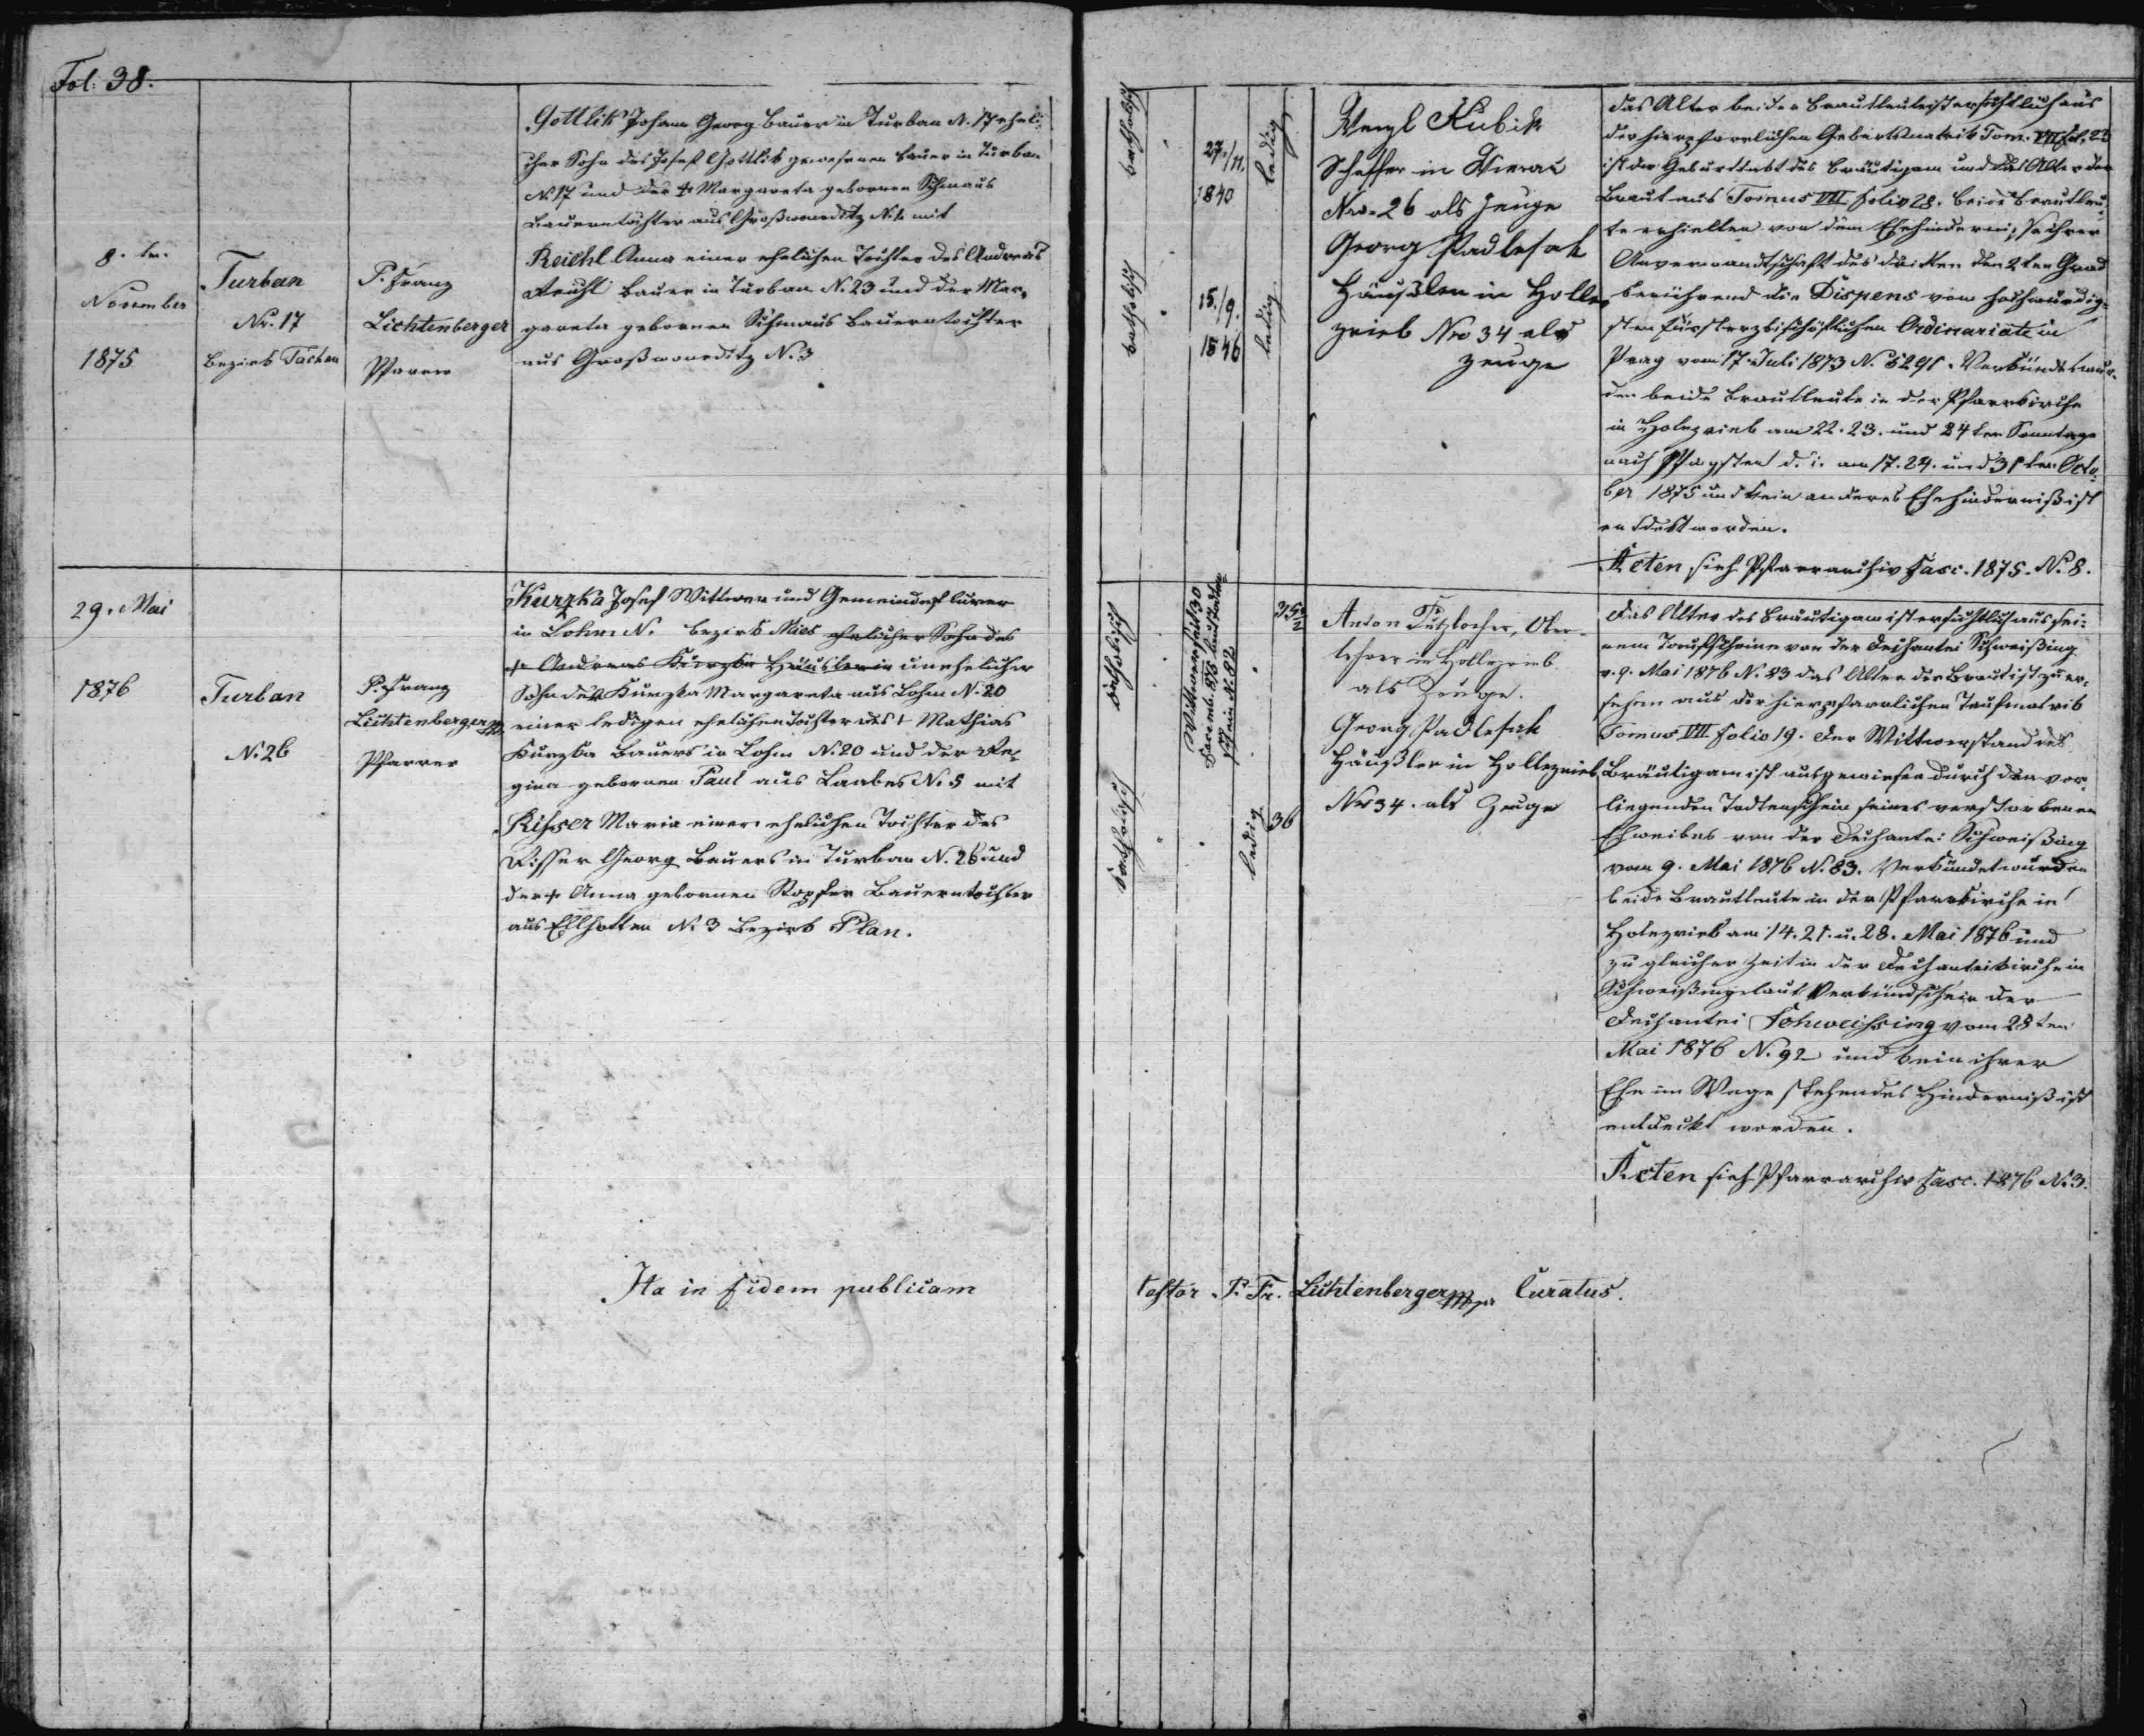 Fol: 38.
8. ten
November
1875
Turban
Nr. 17
Bezirk Tachau
P. Franz
Lichtenberger
Pfarrer
Gottlik Johann Georg Bauer in Turban N. 17 eheli-
cher Sohn des Josef Gottlik gewesenen Bauer in Turban
N. 17 und der † Margareta gebornen Schmaus
Bauerntochter aus Großwoneditz N. 1. mit
Reichl Anna einer ehelichen Tochter des Andreas
Reichl Bauer in Turban N. 23 und der Mar-
gareta gebornen Schmaus Bauerntochter
aus Großwoneditz N. 3
katholisch
katholisch
27./11.
1840
15./9.
1846
ledig
ledig
Wenzl Kubik
Schaffer in
Nro. 26 als Zeuge
Georg Padlesak
Häusler in Holle-
zrieb Nro 34 als
Zeuge
das Alter beider Brautleute ist ersichtlich aus
der hierpfarrlichen Geburtsmatrik Tom. VII fol. 23
ist der Geburtstag des Bräutigam und das Alter der
Braut aus Tomus VII folio 28. beide Brautleu-
te erhielten von dem Ehehinderniß ihrer
Anverwandtschaft des dritten den 2ten Grad
berührend die Dispens vom hochwürdig-
sten fürsterzbischöflichen Ordinariate in
Prag vom 17. Juli 1873 N. 5291. Verkündet wur-
den beide Brautleute in der Pfarrkirche
in Holezrieb am 22. 23. und 24ten Sonntage
nach Pfingsten d. i. am 17. 24. und 31ten Octo-
ber 1875 und kein anderes Ehehinderniß ist
entdeckt worden.
Acten sieh Pfarrarchiv Fasc. 1875. N. 8.
29. Mai
1876
Turban
N. 26
P. Franz
Lichtenberger
Pfarrer
Kurzka Josef Wittwer und Gemeinde
in Lohm N. Bezirk Mies ehelicher Sohn des
† Andreas Kurzka Häusler in unehelicher
Sohn der Kurzka Margareta aus Lohm N. 20
einer ledigen ehelichen Tochter des † Mathias
Kurzka Bauers in Lohm N. 20 und der Re-
gina gebornen Paul aus Laabes N. 5 mit
Risser Maria einer ehelichen Tochter des
Risser Georg Bauers in Turban N. 26 und
der † Anna gebornen Stopfer Bauerntochter
aus Ellhotten N. 3 Bezirk Plan.
katholisch
katholisch
Wittwer seit 30
Decemb. 1875 laut Todten-
schein N. 82
ledig
35 1/2
36
Anton Putzlocher, Ober-
lehrer in Hollezrieb
als Zeuge.
Georg Padlesak
Häußler in Hollezrieb
Nro 34. als Zeuge
das Alter des Bräutigam ist ersichtlich aus sei-
nem Taufscheine von der Dechantei Schweißing
v. 9. Mai 1876 N. 83 das Alter der Braut ist zu er-
sehen aus der hierpfarrlichen Taufmatrik
Tomus VII folio 19. der Wittwerstand des
Bräutigam ist ausgewiesen durch den vor-
liegenden Todtenschein seines verstorbenen
Eheweibes von der Dechantei Schweißing
vom 9. Mai 1876 N. 83. Verkündet wurden
beide Brautleute in der Pfarrkirche in
Holezrieb am 14. 21. u. 28. Mai 1876 und
zu gleicher Zeit in der Dechanteikirche in
Schweißing laut Verkündschein der
Dechantei Schweissing vom 28ten
Mai 1876 N. 92 und kein ihrer
Ehe im Wege stehendes Hinderniß ist
entdeckt worden.
Acten sieh Pfarrarchiv Fasc. 1876 N. 3.
Ita in fidem publicam testor P. Fr. Lichtenberger Curatus.